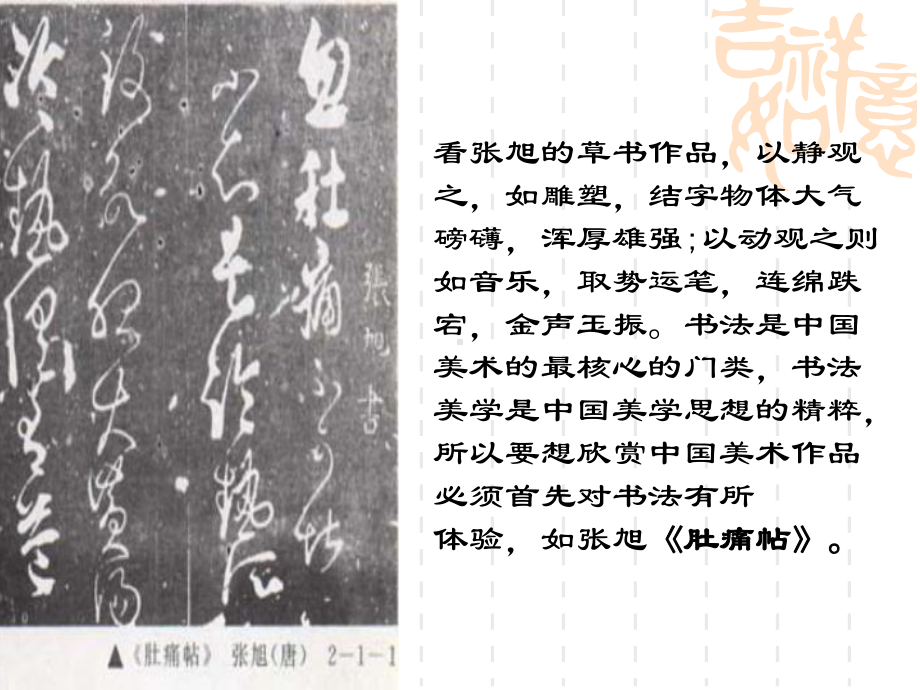 吉祥如意
忽肚痛不可堪
張旭書
不知是冷热所
致欲服大黄汤
冷热俱有益
▲《肚痛帖》 张旭(唐) 2-1-1
看张旭的草书作品，以静观
之，如雕塑，结字物体大气
磅礴，浑厚雄强;以动观之则
如音乐，取势运笔，连绵跌
宕，金声玉振。书法是中国
美术的最核心的门类，书法
美学是中国美学思想的精粹，
所以要想欣赏中国美术作品
必须首先对书法有所
体验，如张旭《肚痛帖》。